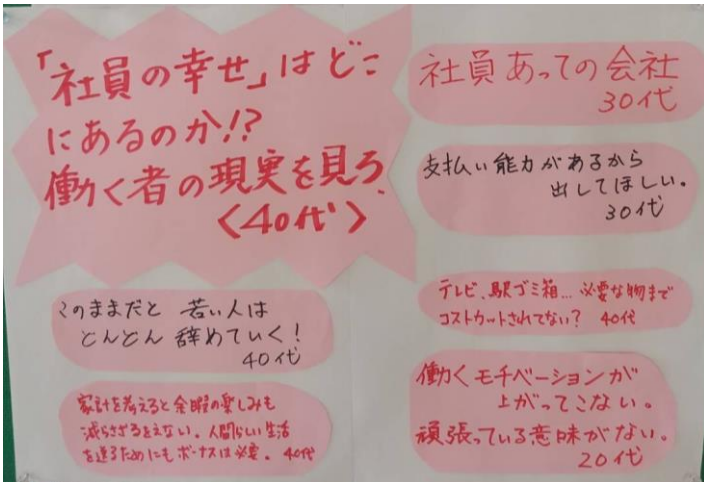 「社員の幸せ」はどこ
にあるのか!?
働く者の現実を見ろ
〈40代〉
このままだと 若い人は
どんどん 辞めていく!
40代
家計を考えると余暇の楽しみも
減らさざるをえない。人間らしい生活
を送るためにもボーナスは必要。 40代
社員あっての会社
30代
支払い能力があるから
出してほしい。
30代
テレビ、駅ゴミ箱... 必要な物まで
コストカットされてない? 40代
働くモチベーションが
上がってこない。
頑張っている意味がない。
20代